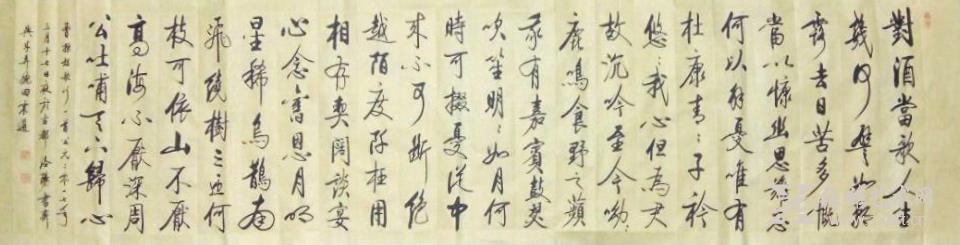 對酒當歌人生
幾何譬如朝
露去日苦多慨
當以慷幽思難忘
何以解憂唯有
杜康青々子衿
悠々我心但為君
故沉吟至今呦々
鹿鳴食野之蘋
我有嘉賓鼓瑟
吹笙明々如月何
時可掇憂從中
來不可斷絕
越陌度阡枉用
相存契闊談宴
心念舊恩月明
星稀烏鵲南
飛繞樹三匝何
枝可依山不厭
高海不厭深周
公吐哺天下歸心
曹操短歌行一首公元二零一七年
三月十七日於古都洛陽書